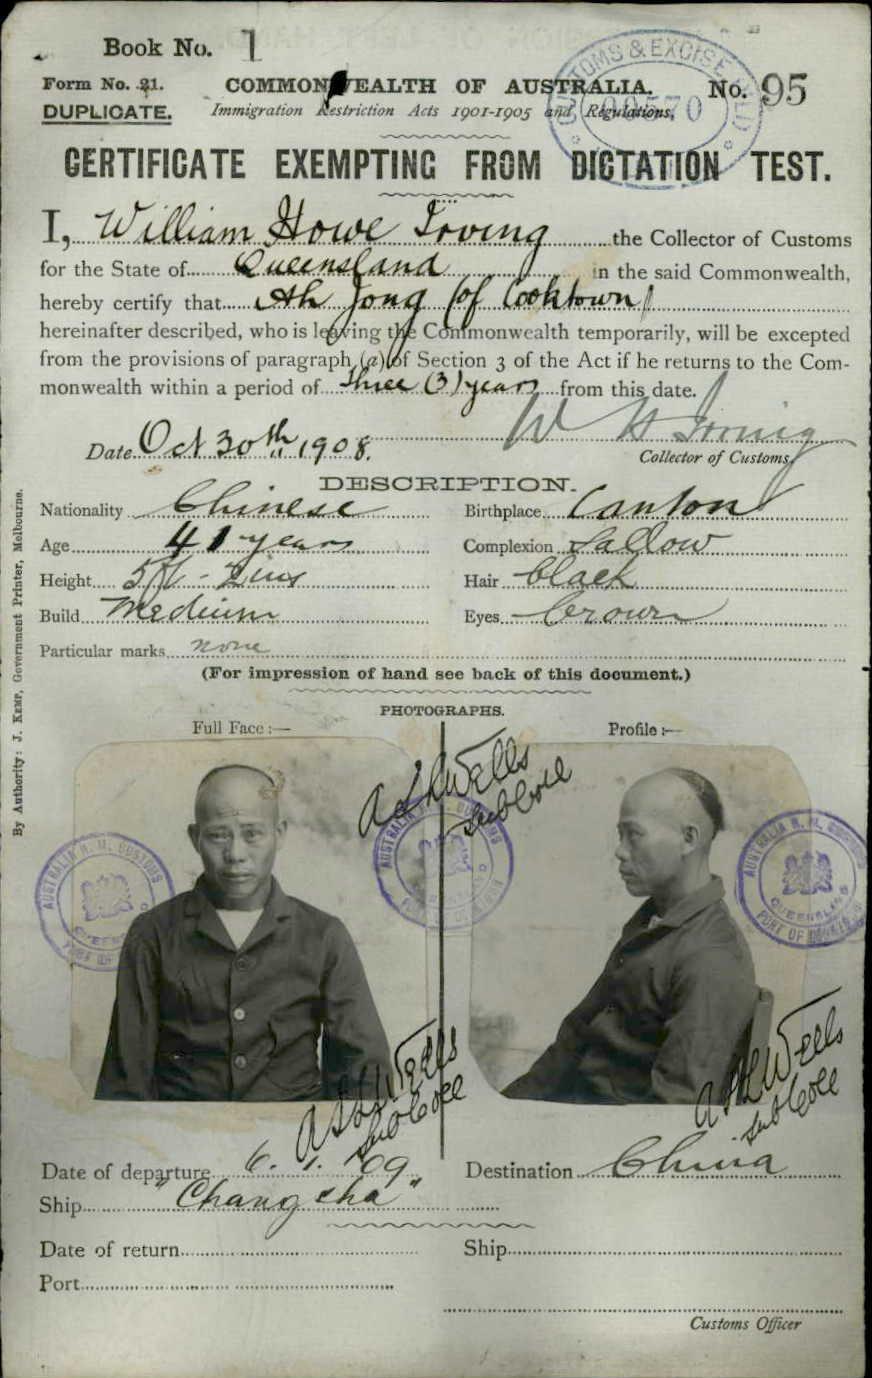 Book No. 1
Form No. 21. COMMONWEALTH OF AUSTRALIA. No. 95
DUPLICATE. Immigration Restriction Acts 1901-1905 and Regulations,
CUSTOMS & EXCISE
CERTIFICATE EXEMPTING FROM DICTATION TEST.
I, William Howe Irving the Collector of Customs
for the State of Queensland in the said Commonwealth,
hereby certify that Ah Jong (of Cooktown)
hereinafter described, who is leaving the Commonwealth temporarily, will be excepted
from the provisions of paragraph (a) of Section 3 of the Act if he returns to the Com-
monwealth within a period of three (3) years from this date.
W H Irving
Date Oct 30th 1908. Collector of Customs.
DESCRIPTION.
Nationality Chinese Birthplace Canton
Age 41 years Complexion Sallow
Height 5ft - 2ins Hair black
Build Medium Eyes brown
Particular marks none
(For impression of hand see back of this document.)
PHOTOGRAPHS.
Full Face:— Profile:—
Wells
Sub Coll
AUSTRALIA H. M. CUSTOMS
QUEENSLAND
PORT OF
AUSTRALIA H. M. CUSTOMS
AUSTRALIA H. M. CUSTOMS
QUEENSLAND
PORT OF
Wells
Sub Coll
Wells
Sub Coll
Date of departure 6. 1. 09 Destination China
Ship "Changsha"
Date of return Ship
Port
Customs Officer
By Authority: J. KEMP, Government Printer, Melbourne.